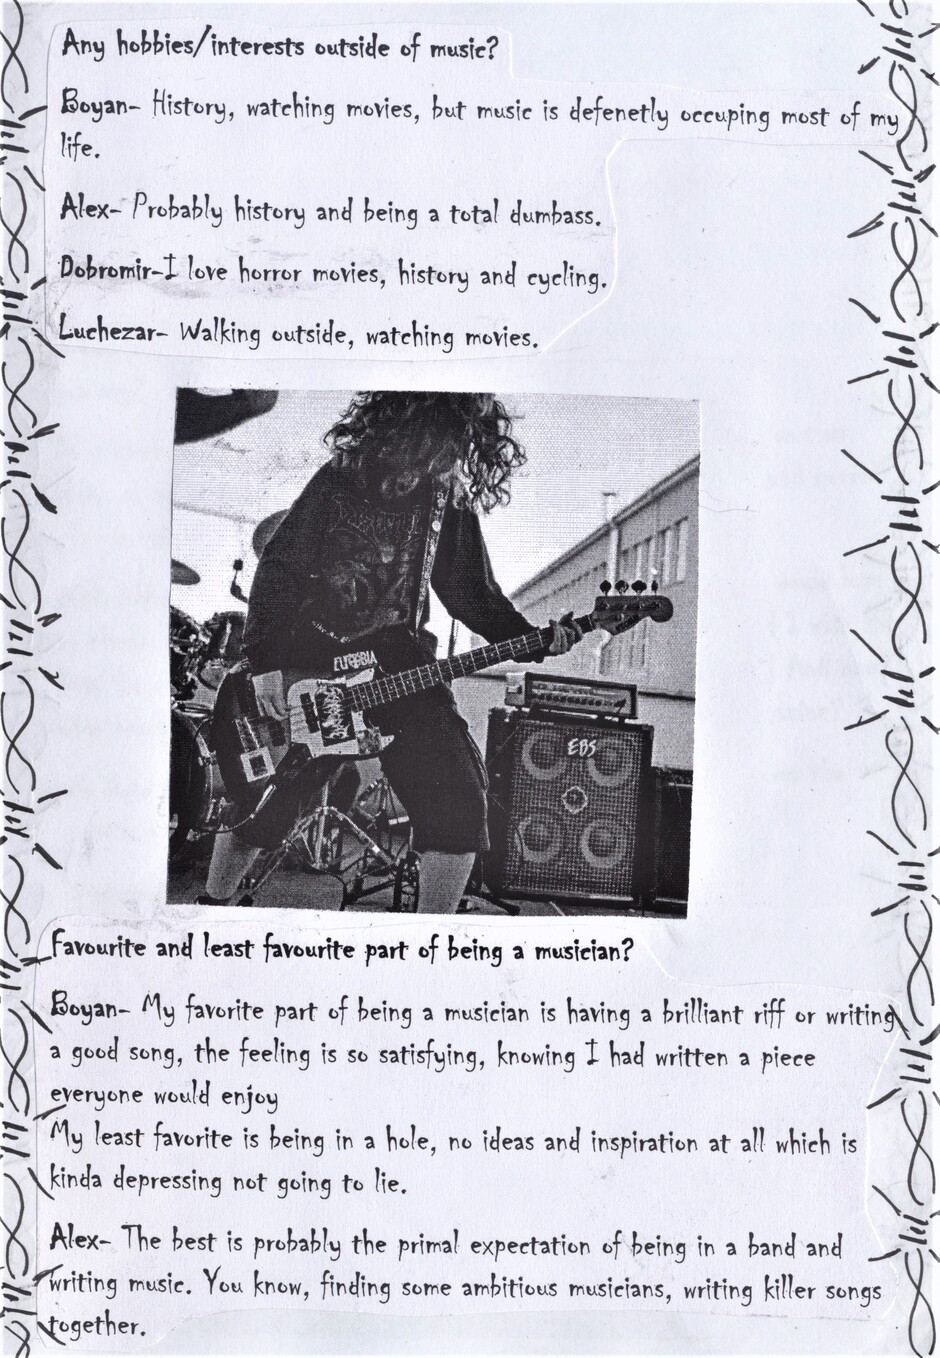 Any hobbies/interests outside of music?
Boyan- History, watching movies, but music is defenetly occuping most of my
life.
Alex- Probably history and being a total dumbass.
Dobromir-I love horror movies, history and cycling.
Luchezar- Walking outside, watching movies.
EBS
Favourite and least favourite part of being a musician?
Boyan- My favorite part of being a musician is having a brilliant riff or writing
a good song, the feeling is so satisfying, knowing I had written a piece
everyone would enjoy
My least favorite is being in a hole, no ideas and inspiration at all which is
kinda depressing not going to lie.
Alex- The best is probably the primal expectation of being in a band and
writing music. You know, finding some ambitious musicians, writing killer songs
together.